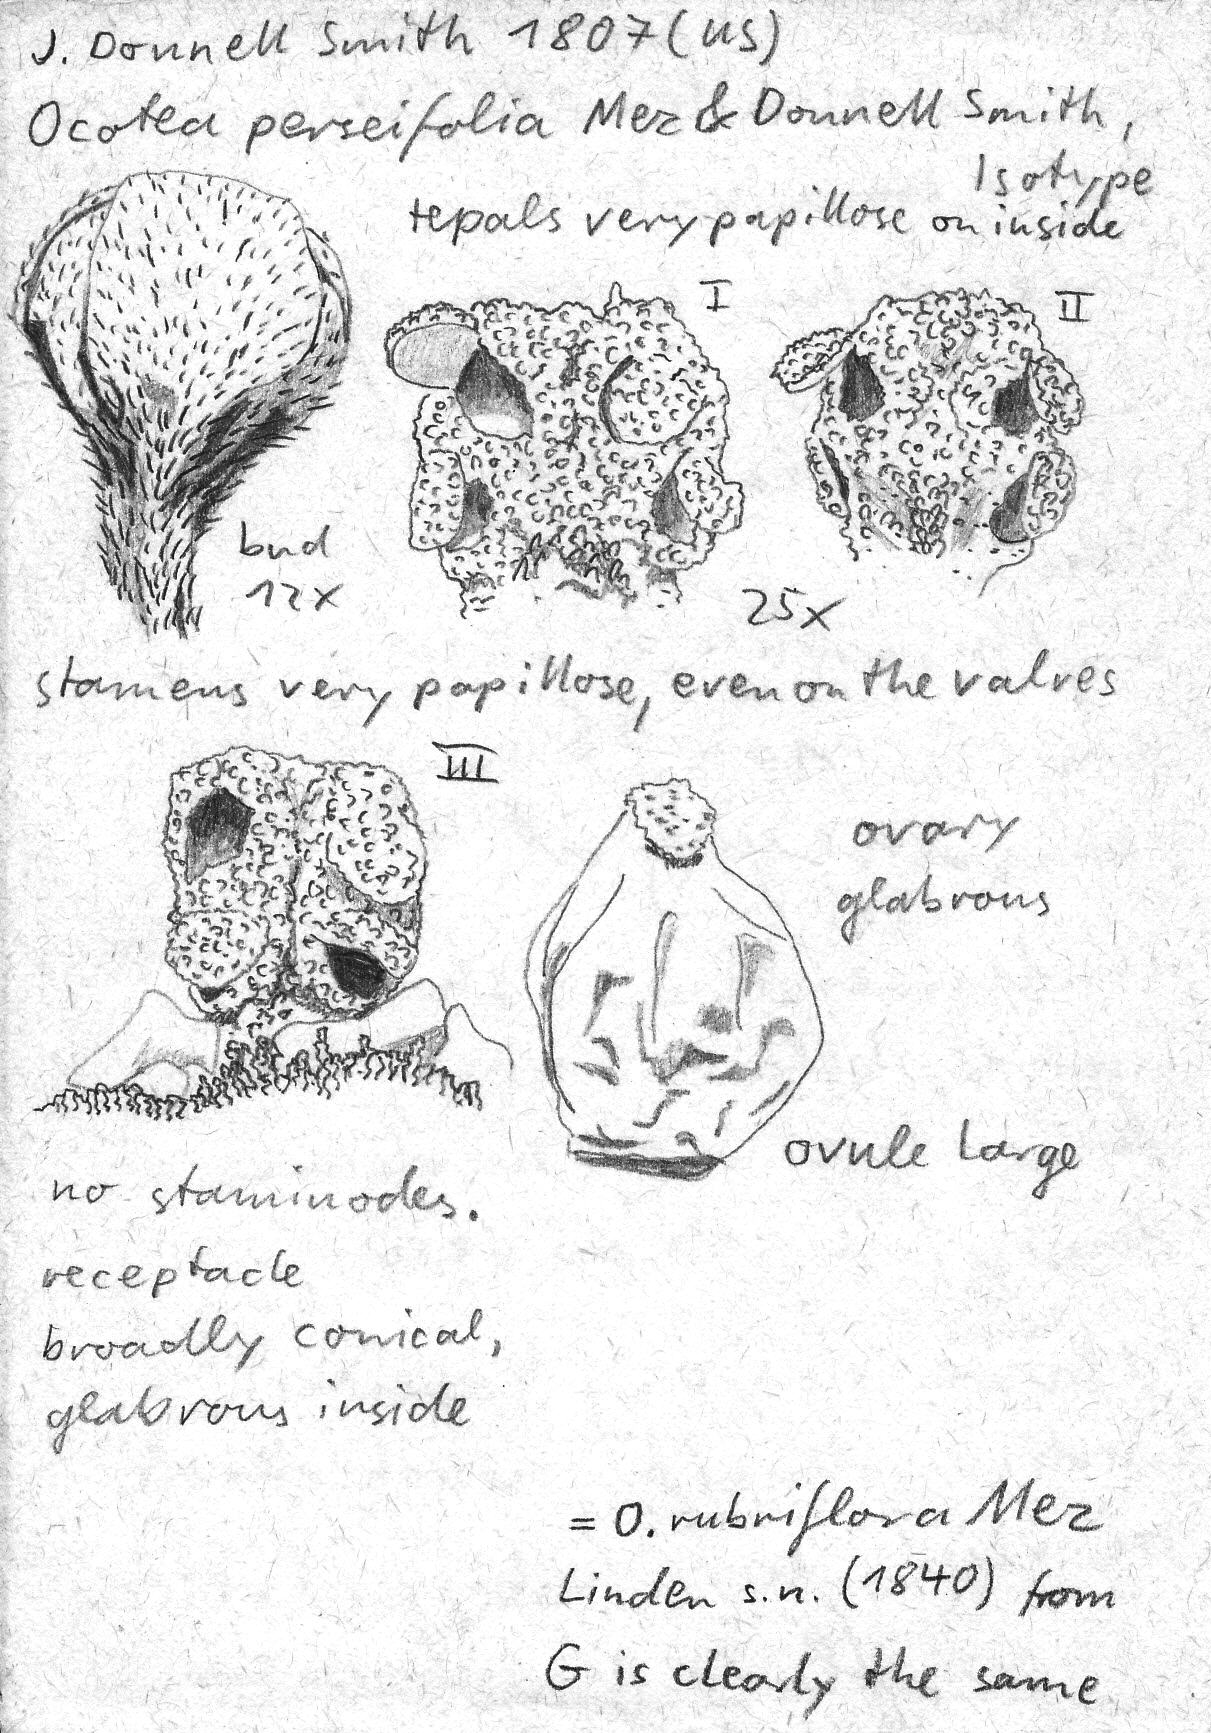 J. Donnell Smith 1807 (US)
Ocotea perseifolia Mez & Donnell Smith,
Isotype
tepals very papillose on inside
I
II
bud
12x
25x
stamens very papillose, even on the valves
III
ovary
glabrous
ovule large
no staminodes.
receptacle
broadly conical,
glabrous inside
= O. rubriflora Mez
Linden s.n. (1840) from
G is clearly the same